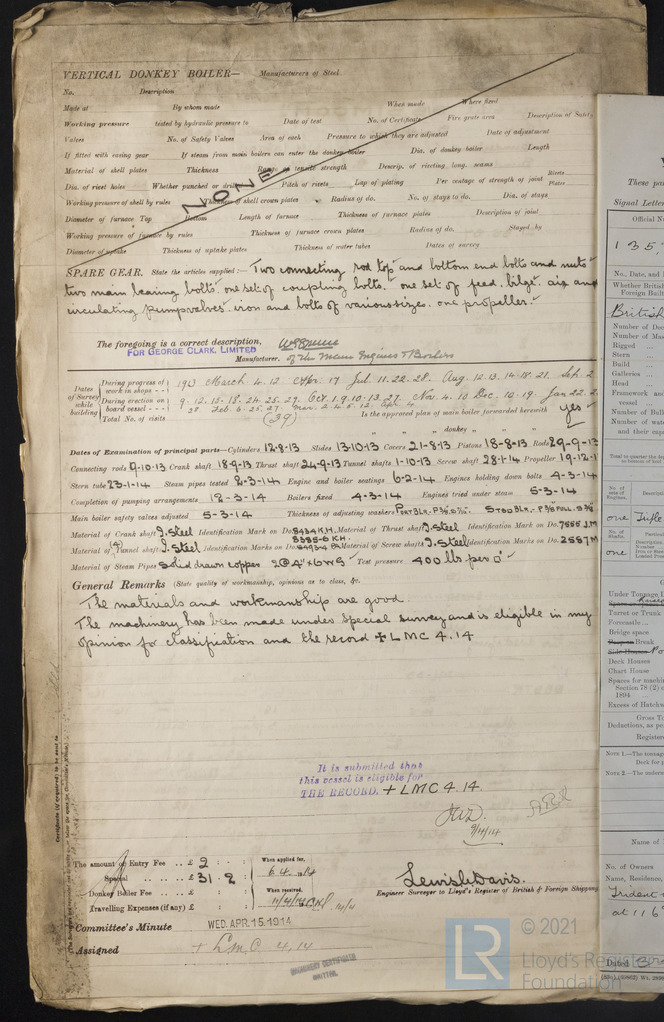 VERTICAL DONKEY BOILER— Manufacturers of Steel
No. Description
Made at By whom made When made Where fixed
Working pressure tested by hydraulic pressure to Date of test No. of Certificate Fire grate area Description of Safety
Valves No. of Safety Valves Area of each Pressure to which they are adjusted Date of adjustment
If fitted with easing gear If steam from main boilers can enter the donkey boiler Dia. of donkey boiler Length
Material of shell plates Thickness Range of tensile strength Descrip. of riveting long. seams
Dia. of rivet holes Whether punched or drilled Pitch of rivets Lap of plating Per centage of strength of joint Rivets Plates
Working pressure of shell by rules Thickness of shell crown plates Radius of do. No. of stays to do. Dia. of stays
Diameter of furnace Top Bottom Length of furnace Thickness of furnace plates Description of joint
Working pressure of furnace by rules Thickness of furnace crown plates Radius of do. Stayed by
Diameter of uptake Thickness of uptake plates Thickness of water tubes Dates of survey
NONE
SPARE GEAR. State the articles supplied:— Two connecting rod top and bottom end bolts and nuts
two main bearing bolts, one set of coupling bolts, one set of feed, bilge, air and
circulating pump valves, iron and bolts of various sizes, one propeller.
The foregoing is a correct description,
FOR GEORGE CLARK, LIMITED
Manufacturer. of the Main Engines & Boilers
Dates of Survey while building
During progress of work in shops - - 1913 March 4. 12 Apr. 17 Jul. 11. 22. 28. Aug. 12. 13. 14. 18. 21. Sep. 2
During erection on board vessel - - - 9. 12. 15. 18. 24. 25. 29. Oct. 1. 9. 10. 13. 27. Nov. 4. 10 Dec. 10. 19. Jan 22. 2
28 Feb. 6. 25. 27. Mar. 2. 4. 5. 12. Apl. 4
Total No. of visits (39) Is the approved plan of main boiler forwarded herewith yes
" " " donkey " " "
Dates of Examination of principal parts—Cylinders 12-8-13 Slides 13-10-13 Covers 21-8-13 Pistons 18-8-13 Rods 29-9-13
Connecting rods 9-10-13 Crank shaft 18-9-13 Thrust shaft 24-9-13 Tunnel shafts 1-10-13 Screw shaft 28-1-14 Propeller 19-12-1
Stern tube 23-1-14 Steam pipes tested 2-3-14 Engine and boiler seatings 6-2-14 Engines holding down bolts 4-3-14
Completion of pumping arrangements 12-3-14 Boilers fixed 4-3-14 Engines tried under steam 5-3-14
Main boiler safety valves adjusted 5-3-14 Thickness of adjusting washers
Material of Crank shaft I. Steel Identification Mark on Do. 8434 K.H. Material of Thrust shaft I. Steel Identification Mark on Do. 7555 J.M
Material of Tunnel shafts I. Steel Identification Marks on Do. Material of Screw shafts I. Steel Identification Marks on Do. 2587 M
Material of Steam Pipes Solid drawn copper 2 @ 4" x 6 WG Test pressure 400 lbs. per □"
General Remarks (State quality of workmanship, opinions as to class, &c.
The materials and workmanship are good.
The machinery has been made under special survey and is eligible in my
opinion for classification and the record + LMC 4.14
It is submitted that
this vessel is eligible for
THE RECORD. + LMC 4.14.
9/4/14
Certificate (if required) to be sent to
The amount of Entry Fee .. £ 2 : :
Special .. .. £ 31 : 2 :
Donkey Boiler Fee .. .. £ : :
Travelling Expenses (if any) £ : :
When applied for,
6.4.14
When received,
11/4/14
Lewis Davis.
Engineer Surveyor to Lloyd's Register of British & Foreign Shipping
Committee's Minute WED. APR. 15. 1914
Assigned + LMC 4.14
MACHINERY CERTIFICATE
WRITTEN.
These par
Signal Lette
Official N
135,
No., Date, and
Whether British
Foreign Built
British
Number of Dec
Number of
Rigged ...
Stern ...
Build ...
Galleries ...
Head ...
Framework and
vessel ...
Number of Bul
Number of wat
and their capa
Total to quarter the dep
to bottom of keel
No. of sets of Engines.
Descript
one Triple
No. of Shafts.
one
Under Tonnage D
Turret or Trunk
Forecastle ...
Bridge space
Break
Deck Houses
Chart House
Spaces for machin
Section 78 (2) o
1894 ...
Excess of Hatchw
Gross T
Deductions, as pe
Register
NOTE 1.—The tonnag
Deck for p
NOTE 2.—The
Name of
No. of Owners
Name, Residence,
Trident
at 116
Dated
LR
© 2021
Lloyd's Register
Foundation